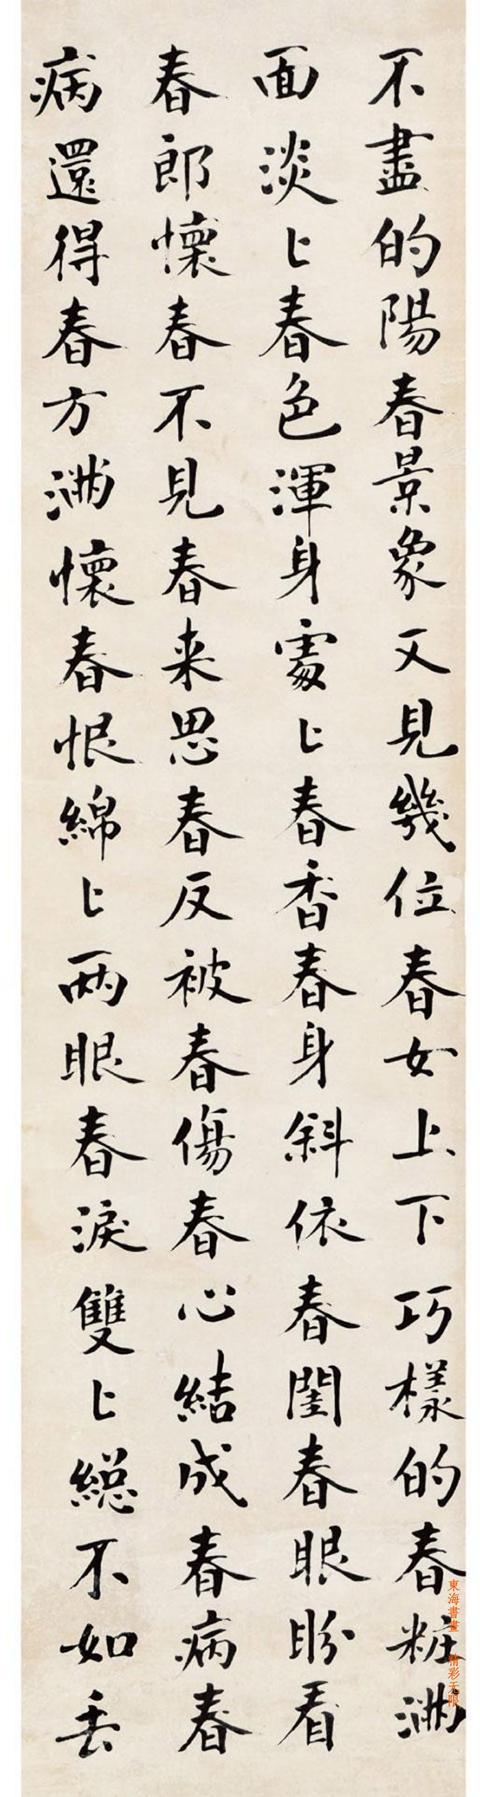 不盡的陽春景象又見幾位春女上下巧樣的春粧滿
面淡〻春色渾身處〻春香春身斜依春閨春眼盼看
春郎懷春不見春来思春反被春傷春心結成春病春
病還得春方滿懷春恨綿〻兩眼春淚雙〻總不如丢
東海書畫 精彩无限